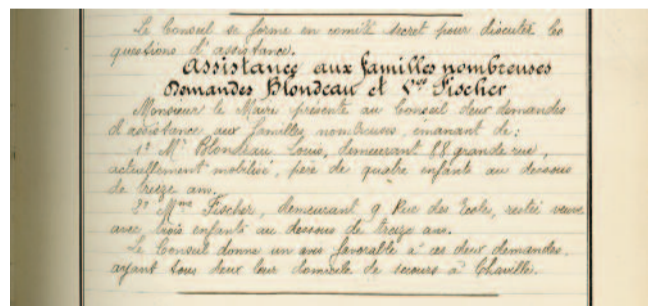 Le Conseil se forme en comité secret pour discuter les
questions d'assistance.
Assistance aux familles nombreuses
Demandes Blondeau et Vve Fischer
Monsieur le Maire présente au Conseil deux demandes
d'assistance aux familles nombreuses, émanant de :
1° Mr Blondeau Louis, demeurant 88 grande rue,
actuellement mobilisé, père de quatre enfants au dessous
de treize ans.
2° Mme Fischer, demeurant 9 Rue des Ecoles, restée veuve
avec trois enfants au dessous de treize ans.
Le Conseil donne un avis favorable à ces deux demandes,
ayant tous deux leur domicile de secours à Chaville.